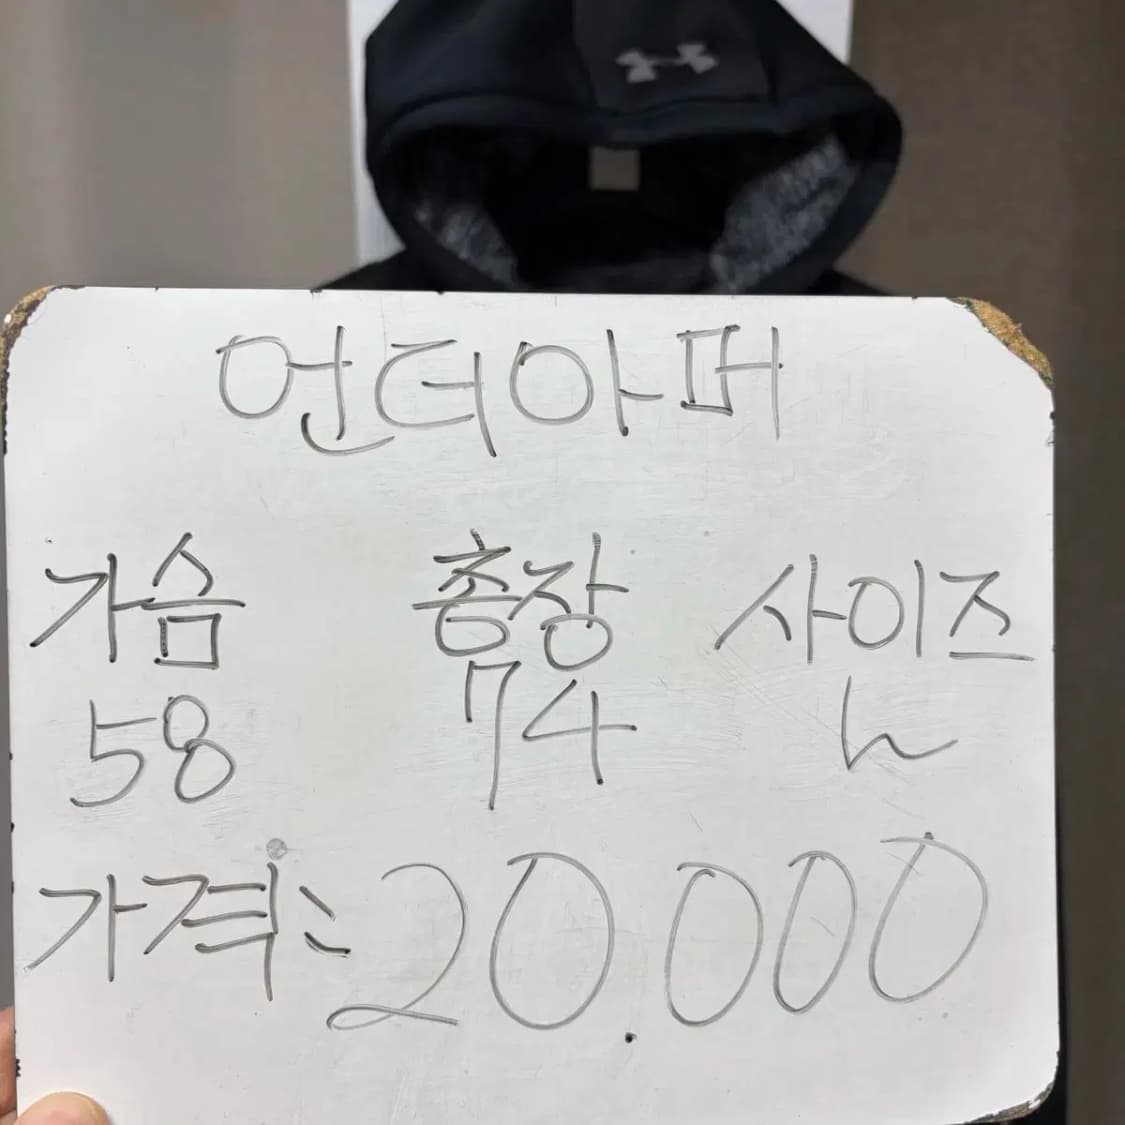 언더아머
가슴 총장 사이즈
58 74 L
가격: 20.000